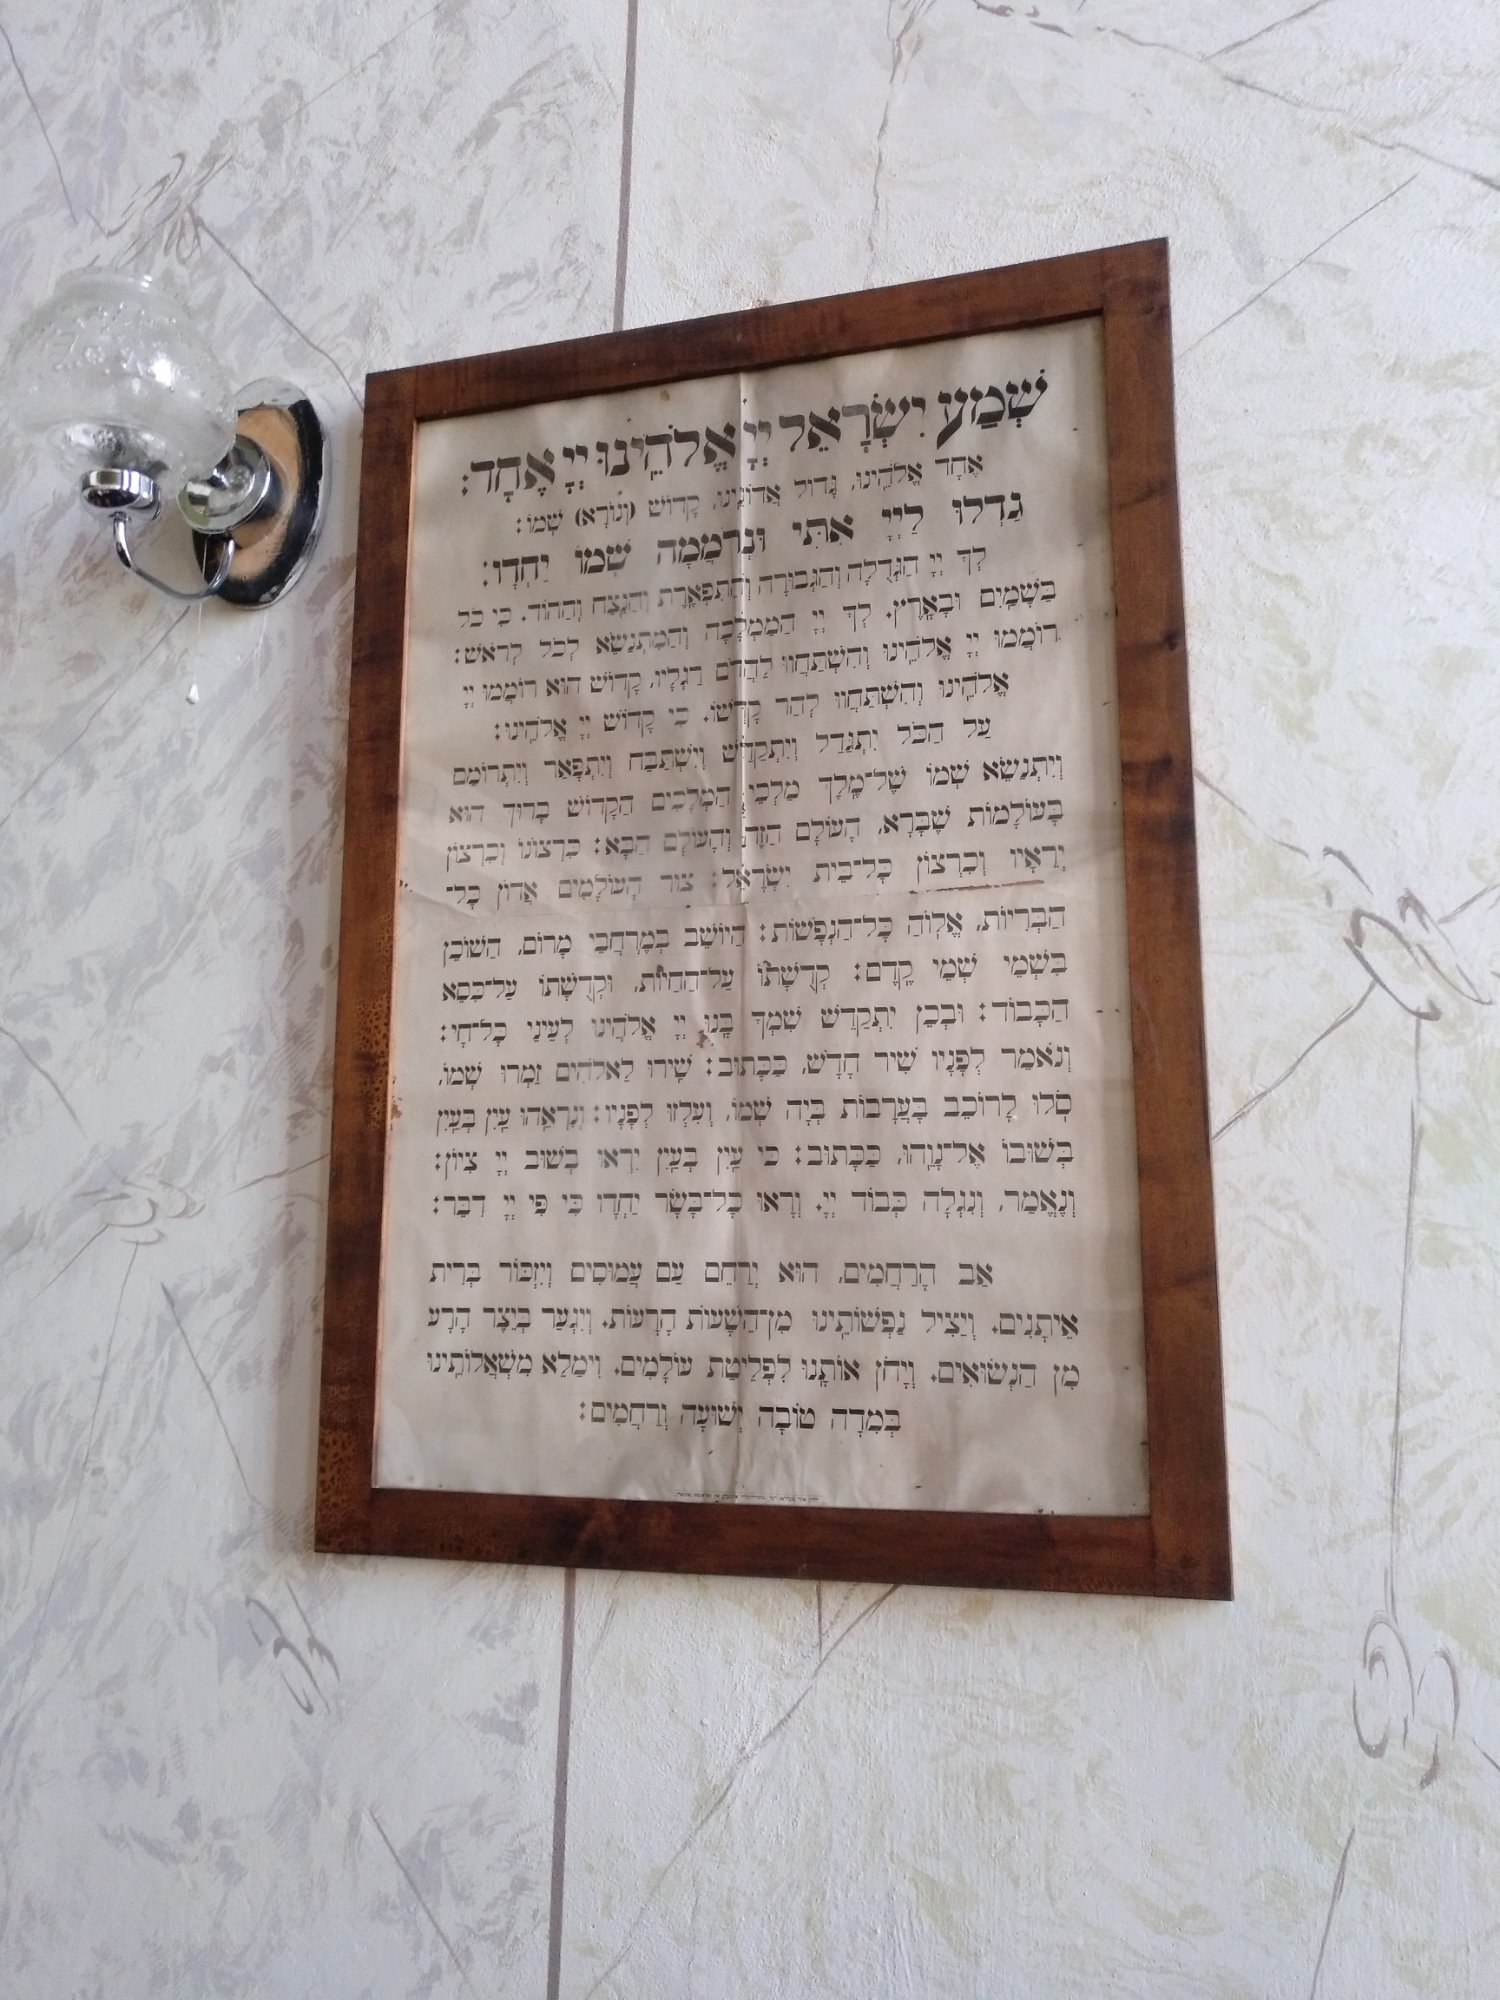 שְׁמַע יִשְׂרָאֵל יְיָ אֱלֹהֵינוּ יְיָ אֶחָד׃
אֶחָד אֱלֹהֵינוּ, גָּדוֹל אֲדוֹנֵינוּ, קָדוֹשׁ (וְנוֹרָא) שְׁמוֹ׃
גַּדְּלוּ לַייָ אִתִּי וּנְרוֹמְמָה שְׁמוֹ יַחְדָּו׃
לְךָ יְיָ הַגְּדֻלָּה וְהַגְּבוּרָה וְהַתִּפְאֶרֶת וְהַנֵּצַח וְהַהוֹד. כִּי כֹל
בַּשָּׁמַיִם וּבָאָרֶץ. לְךָ יְיָ הַמַּמְלָכָה וְהַמִּתְנַשֵּׂא לְכֹל לְרֹאשׁ׃
רוֹמְמוּ יְיָ אֱלֹהֵינוּ וְהִשְׁתַּחֲווּ לַהֲדֹם רַגְלָיו, קָדוֹשׁ הוּא רוֹמְמוּ יְיָ
אֱלֹהֵינוּ וְהִשְׁתַּחֲווּ לְהַר קָדְשׁוֹ. כִּי קָדוֹשׁ יְיָ אֱלֹהֵינוּ׃
עַל הַכֹּל יִתְגַּדַּל וְיִתְקַדַּשׁ וְיִשְׁתַּבַּח וְיִתְפָּאַר וְיִתְרוֹמַם
וְיִתְנַשֵּׂא שְׁמוֹ שֶׁל־מֶלֶךְ מַלְכֵי הַמְּלָכִים הַקָּדוֹשׁ בָּרוּךְ הוּא
בָּעוֹלָמוֹת שֶׁבָּרָא, הָעוֹלָם הַזֶּה וְהָעוֹלָם הַבָּא׃ כִּרְצוֹנוֹ וְכִרְצוֹן
יְרֵאָיו וְכִרְצוֹן כָּל־בֵּית יִשְׂרָאֵל׃ צוּר הָעוֹלָמִים אֲדוֹן כָּל־
הַבְּרִיּוֹת, אֱלוֹהַּ כָּל־הַנְּפָשׁוֹת׃ הַיּוֹשֵׁב בְּמֶרְחֲבֵי מָרוֹם, הַשּׁוֹכֵן
בִּשְׁמֵי שְׁמֵי קֶדֶם׃ קְדֻשָּׁתוֹ עַל־הַחַיּוֹת, וּקְדֻשָּׁתוֹ עַל־כִּסֵּא
הַכָּבוֹד׃ וּבְכֵן יִתְקַדַּשׁ שִׁמְךָ בָּנוּ יְיָ אֱלֹהֵינוּ לְעֵינֵי כָּל־חָי׃
וְנֹאמַר לְפָנָיו שִׁיר חָדָשׁ, כַּכָּתוּב׃ שִׁירוּ לֵאלֹהִים זַמְּרוּ שְׁמוֹ,
סֹלּוּ לָרוֹכֵב בָּעֲרָבוֹת בְּיָהּ שְׁמוֹ, וְעִלְזוּ לְפָנָיו׃ וְנִרְאֵהוּ עַיִן בְּעַיִן
בְּשׁוּבוֹ אֶל־נָוֵהוּ, כַּכָּתוּב׃ כִּי עַיִן בְּעַיִן יִרְאוּ בְּשׁוּב יְיָ צִיּוֹן׃
וְנֶאֱמַר, וְנִגְלָה כְּבוֹד יְיָ. וְרָאוּ כָל־בָּשָׂר יַחְדָּו כִּי פִּי יְיָ דִּבֵּר׃
אַב הָרַחֲמִים, הוּא יְרַחֵם עַם עֲמוּסִים וְיִזְכּוֹר בְּרִית
אֵיתָנִים. וְיַצִּיל נַפְשׁוֹתֵינוּ מִן־הַשָּׁעוֹת הָרָעוֹת. וְיִגְעַר בְּיֵצֶר הָרָע
מִן הַנְּשׂוּאִים. וְיָחֹן אוֹתָנוּ לִפְלֵיטַת עוֹלָמִים. וִימַלֵּא מִשְׁאֲלוֹתֵינוּ
בְּמִדָּה טוֹבָה יְשׁוּעָה וְרַחֲמִים׃